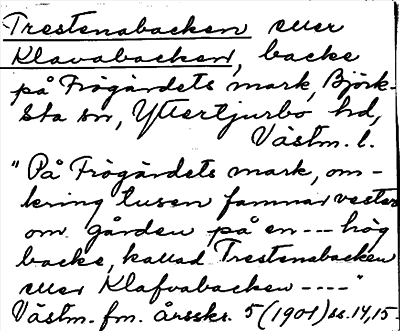 Trestenabacken eller
Klavabacken, backe
på Frögärdets mark, Björk-
sta sn, Yttertjurbo hd,
Västm. l.
"På Frögärdets mark, om-
kring tusen famnar vester
om gården på en --- hög
backe, kallad Trestenabacken
eller Klafvabacken ----"
Västm. fm. årsskr. 5 (1901) ss. 14, 15.